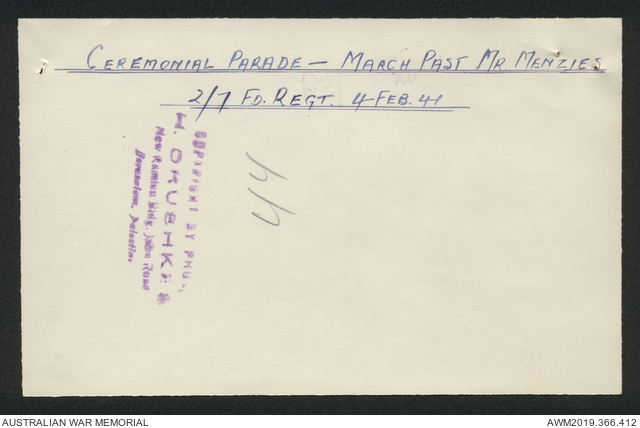 CEREMONIAL PARADE — MARCH PAST MR. MENZIES
2/7 FD. REGT. 4 FEB. 41
COPYRIGHT BY
H. ORUSHKES
New Building Bldg. Jaffa Road
Jerusalem, Palestine.
44
AUSTRALIAN WAR MEMORIAL
AWM2019.366.412